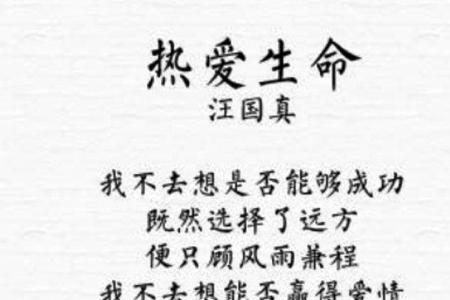 热爱生命
汪国真
我不去想是否能够成功
既然选择了远方
便只顾风雨兼程
我不去想能否赢得爱情